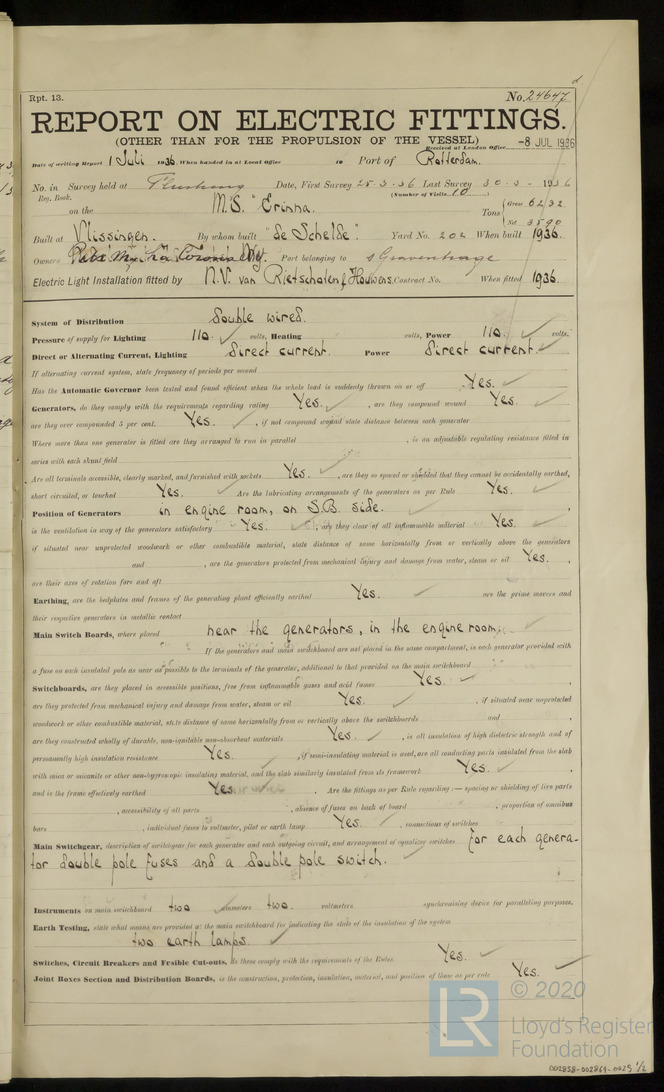 Rpt. 13.
No. 24647
REPORT ON ELECTRIC FITTINGS.
(OTHER THAN FOR THE PROPULSION OF THE VESSEL)
Received at London Office -8 JUL 1936
Date of writing Report 1 Juli 1936 When handed in at Local Office 19 Port of Rotterdam.
No. in Survey held at Flushing Date, First Survey 25-3-36 Last Survey 30-3-1936
Reg. Book. (Number of Visits 10)
on the M.S. "Erinna. Tons { Gross 6232
Net 3590
Built at Vlissingen. By whom built "de Schelde". Yard No. 202 When built 1936.
Owners Port belonging to s Gravenhage
Electric Light Installation fitted by N.V. van Rietschoten & Houwens. Contract No. When fitted 1936.
System of Distribution Double wired.
Pressure of supply for Lighting 110. volts, Heating volts, Power 110. volts.
Direct or Alternating Current, Lighting Direct current. Power Direct current.
If alternating current system, state frequency of periods per second
Has the Automatic Governor been tested and found efficient when the whole load is suddenly thrown on or off Yes.
Generators, do they comply with the requirements regarding rating Yes. , are they compound wound Yes.
are they over compounded 5 per cent. Yes. , if not compound wound state distance between each generator
Where more than one generator is fitted are they arranged to run in parallel , is an adjustable regulating resistance fitted in
series with each shunt field
Are all terminals accessible, clearly marked, and furnished with sockets Yes. , are they so spaced or shielded that they cannot be accidentally earthed,
short circuited, or touched Yes. Are the lubricating arrangements of the generators as per Rule Yes.
Position of Generators in engine room, on S.B. side.
is the ventilation in way of the generators satisfactory Yes. , are they clear of all inflammable material Yes.
if situated near unprotected woodwork or other combustible material, state distance of same horizontally from or vertically above the generators
and , are the generators protected from mechanical injury and damage from water, steam or oil Yes. ,
are their axes of rotation fore and aft
Earthing, are the bedplates and frames of the generating plant efficiently earthed Yes. are the prime movers and
their respective generators in metallic contact
Main Switch Boards, where placed near the generators, in the engine room.
If the generators and main switchboard are not placed in the same compartment, is each generator provided with
a fuse on each insulated pole as near as possible to the terminals of the generator, additional to that provided on the main switchboard
Switchboards, are they placed in accessible positions, free from inflammable gases and acid fumes Yes. ,
are they protected from mechanical injury and damage from water, steam or oil Yes. , if situated near unprotected
woodwork or other combustible material, state distance of same horizontally from or vertically above the switchboards and ,
are they constructed wholly of durable, non-ignitable non-absorbent materials Yes. , is all insulation of high dielectric strength and of
permanently high insulation resistance Yes. , if semi-insulating material is used, are all conducting parts insulated from the slab
with mica or micanite or other non-hygroscopic insulating material, and the slab similarly insulated from its framework Yes. ,
and is the frame effectively earthed Yes. . Are the fittings as per Rule regarding :— spacing or shielding of live parts
, accessibility of all parts , absence of fuses on back of board , proportion of omnibus
bars , individual fuses to voltmeter, pilot or earth lamp Yes. , connections of switches
Main Switchgear, description of switchgear for each generator and each outgoing circuit, and arrangement of equalizer switches For each genera-
tor Double pole fuses and a Double pole switch.
Instruments on main switchboard two ammeters two. voltmeters synchronising device for paralleling purposes.
Earth Testing, state what means are provided at the main switchboard for indicating the state of the insulation of the system
two earth lamps.
Switches, Circuit Breakers and Fusible Cut-outs, do these comply with the requirements of the Rules Yes.
Joint Boxes Section and Distribution Boards, is the construction, protection, insulation, material, and position of these as per rule Yes.
LR
© 2020
Lloyd's Register
Foundation
002858-002864-0025 1/2